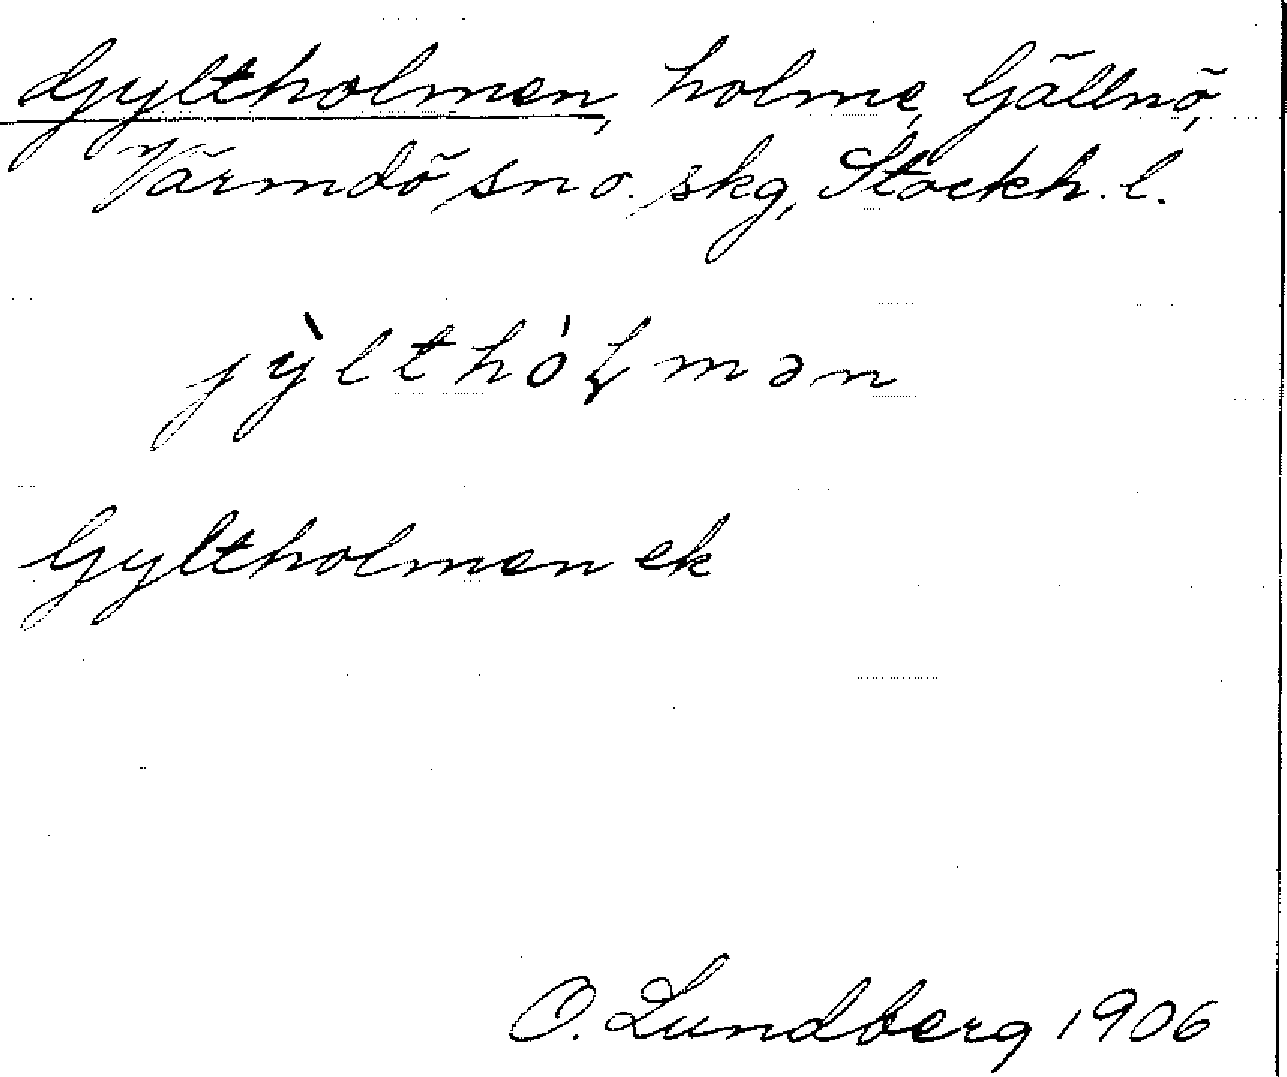 Gyltholmen, holme, Gällnö,
Värmdö sn o. skg, Stockh. l.
jỳlthóɫmən
Gyltholmen ek
O. Lundberg 1906